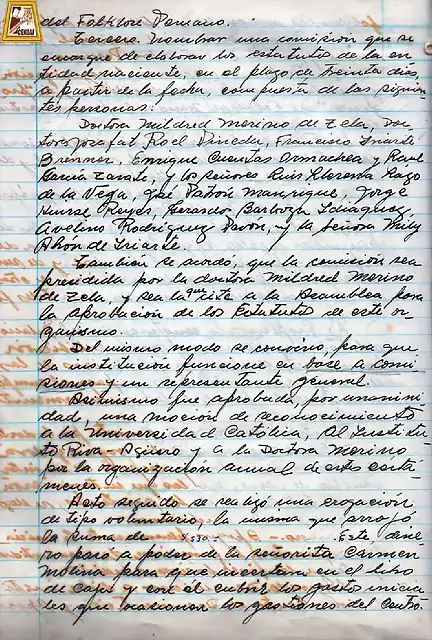 del Folklore Peruano.
Tercero. Nombrar una comisión que se
encargue de elaborar los estatutos de la en
tidad naciente, en el plazo de treinta días,
a partir de la fecha, compuesta de las siguien
tes personas:
Doctora Mildred Merino de Zela, Doc-
tores Josafat Roel Pineda, Francisco Iriarte
Brenner, Enrique Cuentas Ormachea y Raul
García Zarate, y los señores Luis Lazo
de la Vega, José Patrón Manrique, Jorge
Reyes, Gerardo Barboza,
Avelino Rodríguez Pavon, y la señora Mily
Ahon de Iriarte.
También se acordó, que la comisión sea
presidida por la doctora Mildred Merino
de Zela, y sea la que cite a la Asamblea para
la aprobación de los Estatutos de este or
ganismo.
Del mismo modo se convino, para que
la institución funcione en base a comi
siones y un representante general.
Asimismo fue aprobada por unanimi
dad, una moción de reconocimiento
a la Universidad Católica, Al Institu
to Riva-Agüero y a la Doctora Merino
por la organización anual de estos certá
menes.
Acto seguido se realizó una erogación
de tipo voluntario, la misma que arrojó
la suma de Este dine
ro pasó a poder de la señorita Carmen
Molina para que insertara en el libro
de caja y con él cubrir los gastos inicia
les que ocasionan las gestiones del Centro.